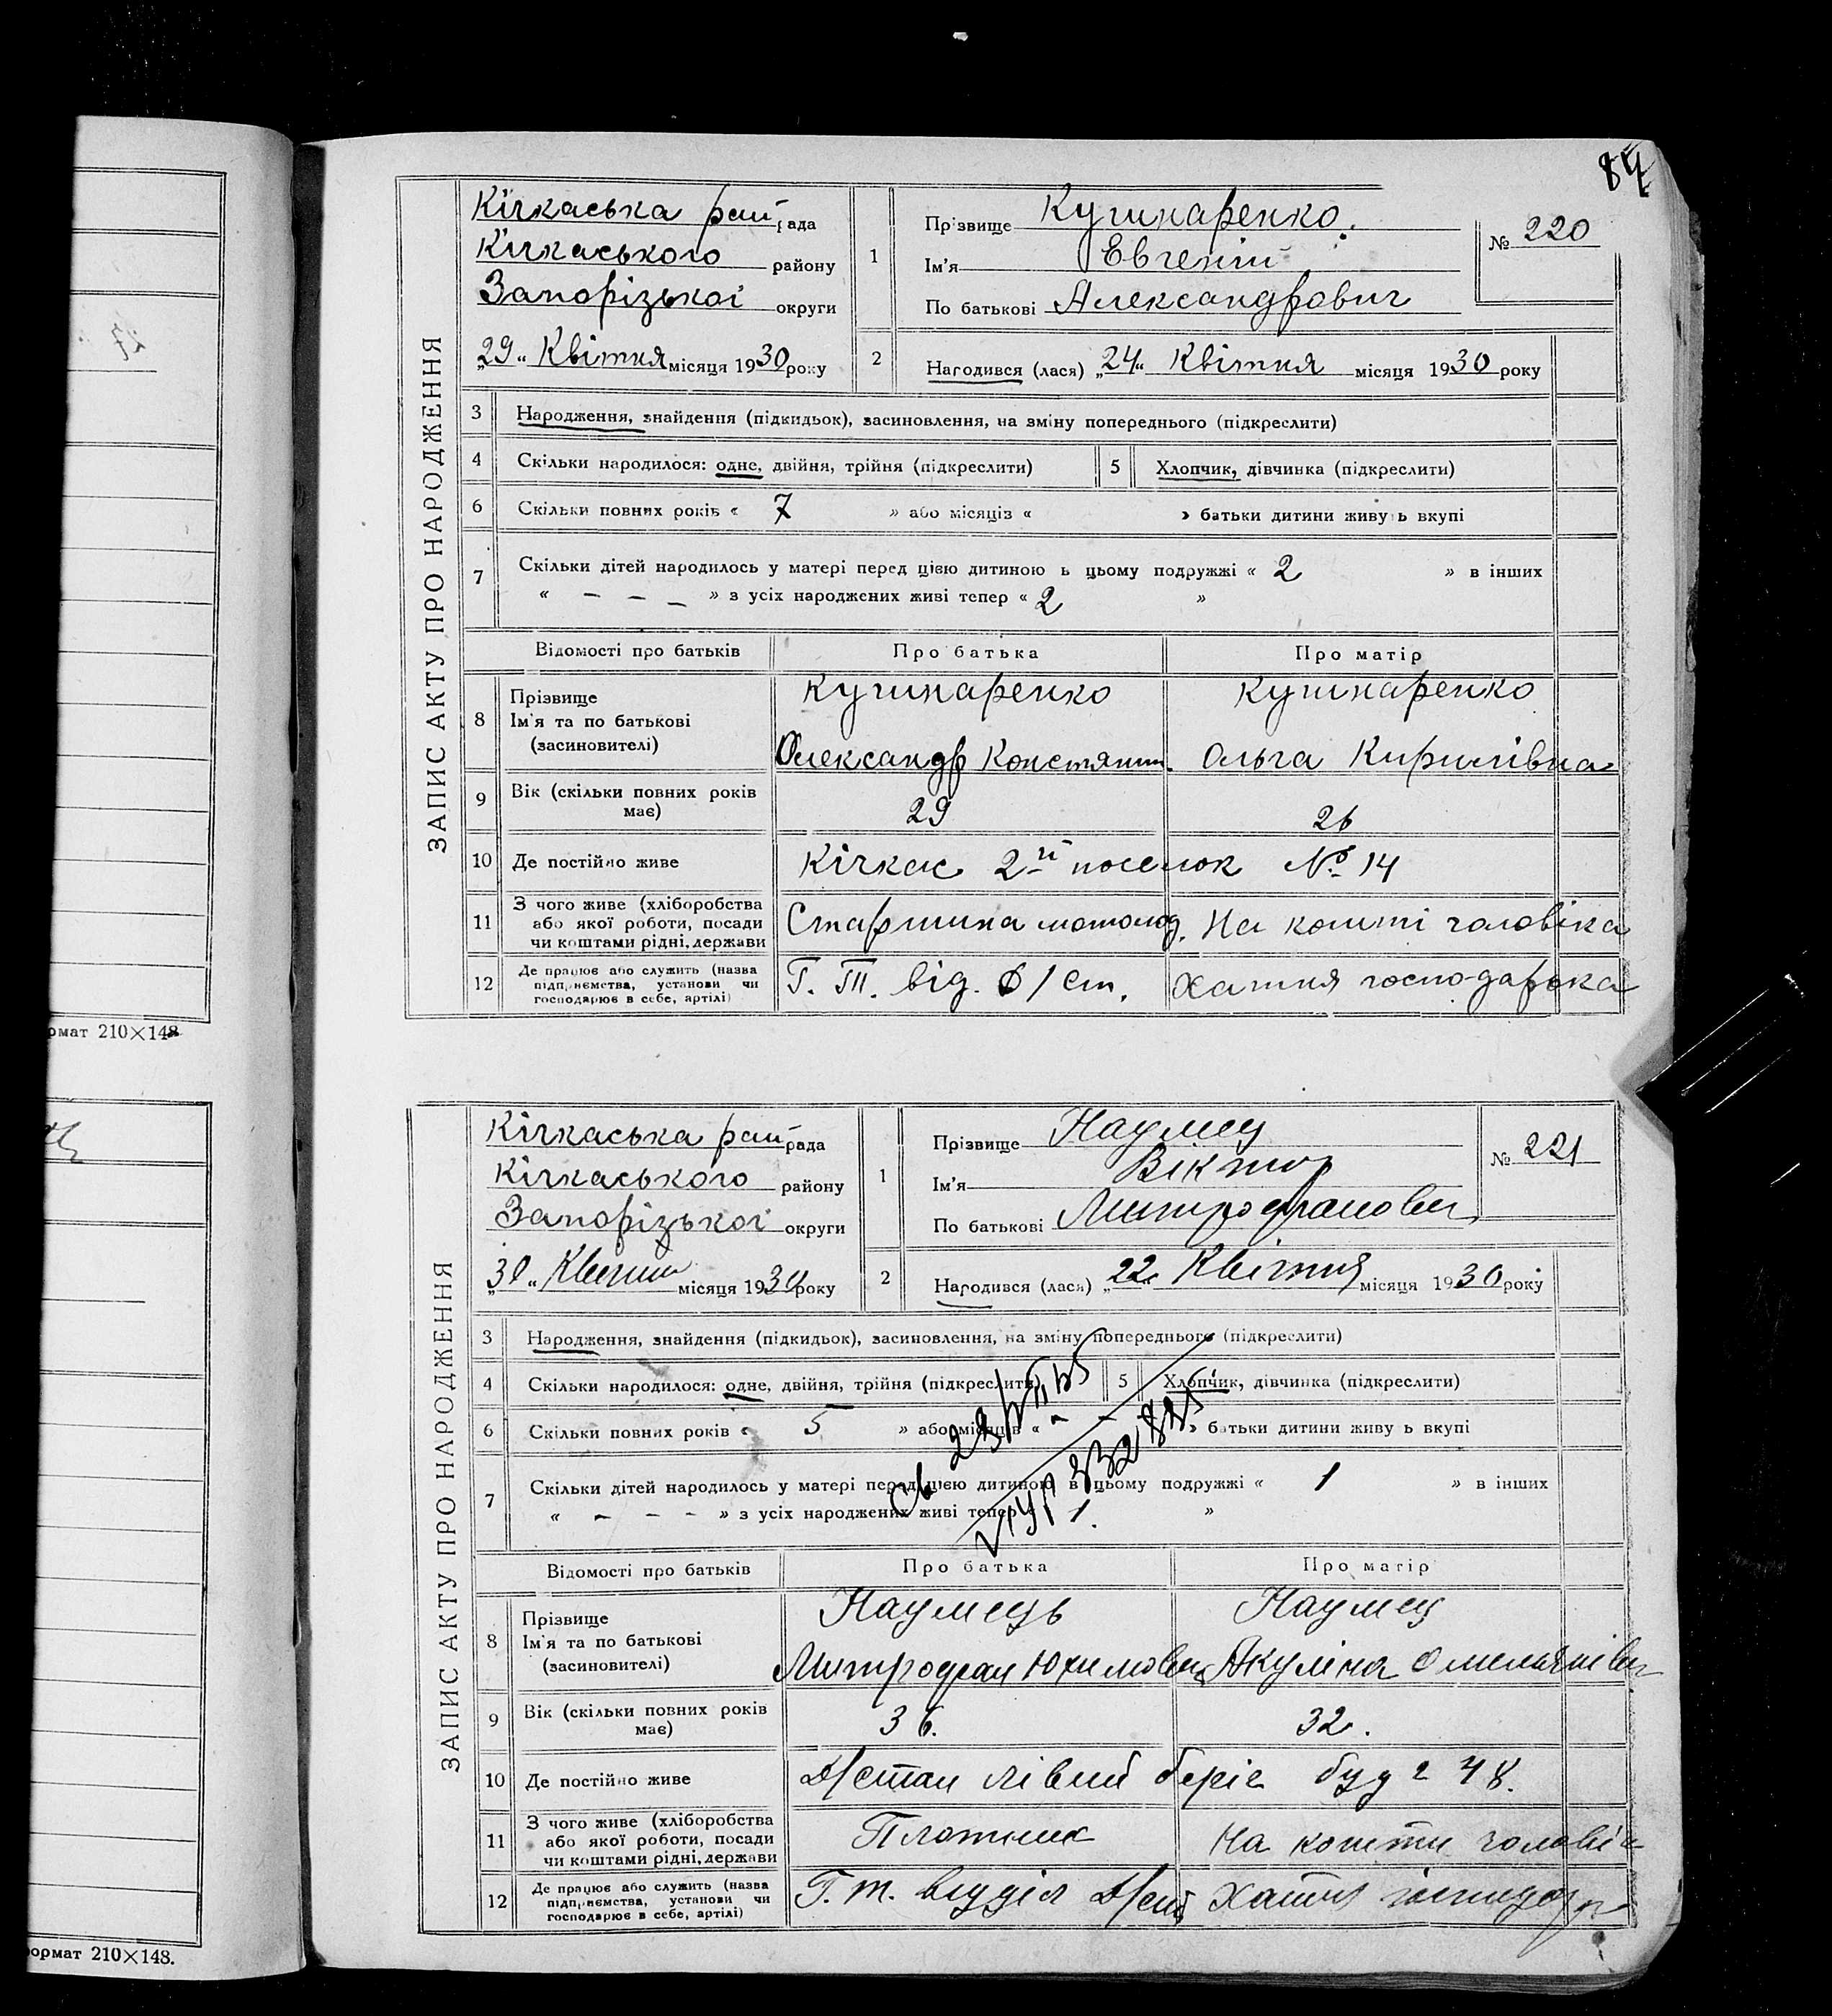 84
ЗАПИС АКТУ ПРО НАРОДЖЕННЯ
Кічкаська рай рада
Кічкаського району
Запорізької округи
„29" Квітня місяця 1930 року
1 Прізвище Кушнаренко.
Ім'я Евгеній
По батькові Александрович
№ 220
2 Народився (лася) „24" Квітня місяця 1930 року
3 Народження, знайдення (підкидьок), засиновлення, на зміну попереднього (підкреслити)
4 Скільки народилося: одне, двійня, трійня (підкреслити) 5 Хлопчик, дівчинка (підкреслити)
6 Скільки повних років « 7 » або місяців « » батьки дитини живуть вкупі
7 Скільки дітей народилось у матері перед цією дитиною в цьому подружжі « 2 » в інших
« — — — » з усіх народжених живі тепер « 2 »
Відомості про батьків Про батька Про матір
8 Прізвище Кушнаренко Кушнаренко
Ім'я та по батькові
(засиновителі) Олександр Констянтин. Ольга Кирилівна
9 Вік (скільки повних років має) 29 26
10 Де постійно живе Кічкас 2й поселок № 14
11 З чого живе (хліборобства
або якої роботи, посади
чи коштами рідні, держави Старшина На кошті чоловіка
12 Де працює або служить (назва
підприємства, установи чи
господарює в себе, артілі) Г. Т. від. Д/ст. Хатня господарька
рмат 210×148
ЗАПИС АКТУ ПРО НАРОДЖЕННЯ
Кічкаська рай рада
Кічкаського району
Запорізької округи
„30" Квітня місяця 1930 року
1 Прізвище Наумец
Ім'я Віктор
По батькові Митрофанович
№ 221
2 Народився (лася) „22" Квітня місяця 1930 року
3 Народження, знайдення (підкидьок), засиновлення, на зміну попереднього (підкреслити)
4 Скільки народилося: одне, двійня, трійня (підкреслити) 5 Хлопчик, дівчинка (підкреслити)
6 Скільки повних років « 5 » або місяців « — — » батьки дитини живуть вкупі
7 Скільки дітей народилось у матері перед цією дитиною в цьому подружжі « 1 » в інших
« — — — » з усіх народжених живі тепер « 1. »
Відомості про батьків Про батька Про матір
8 Прізвище Наумець Наумец
Ім'я та по батькові
(засиновителі) Митрофан Юхимович Акуліна Омелянівн
9 Вік (скільки повних років має) 36. 32.
10 Де постійно живе Д/стан лівий беріг буд 2 48.
11 З чого живе (хліборобства
або якої роботи, посади
чи коштами рідні, держави Плотник На кошти чоловік
12 Де працює або служить (назва
підприємства, установи чи
господарює в себе, артілі) Г. т. відділ Д/ст Хатня господар
ормат 210×148.